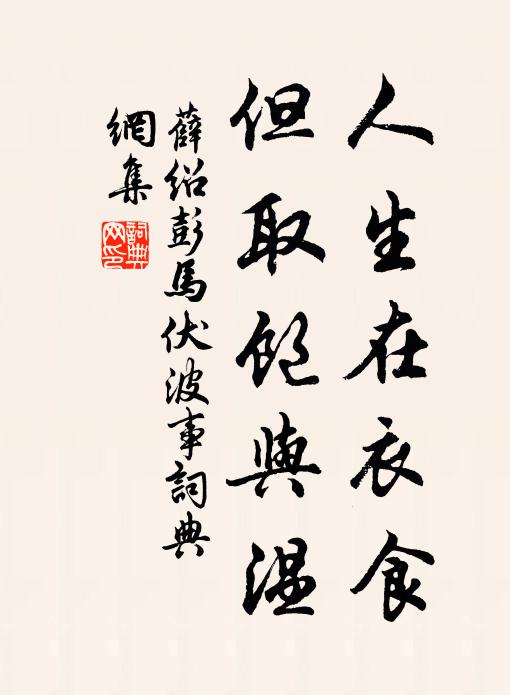 人生在衣食
但取飽與溫
薛紹彭馬伏波事詞典
網集
詞典
网印